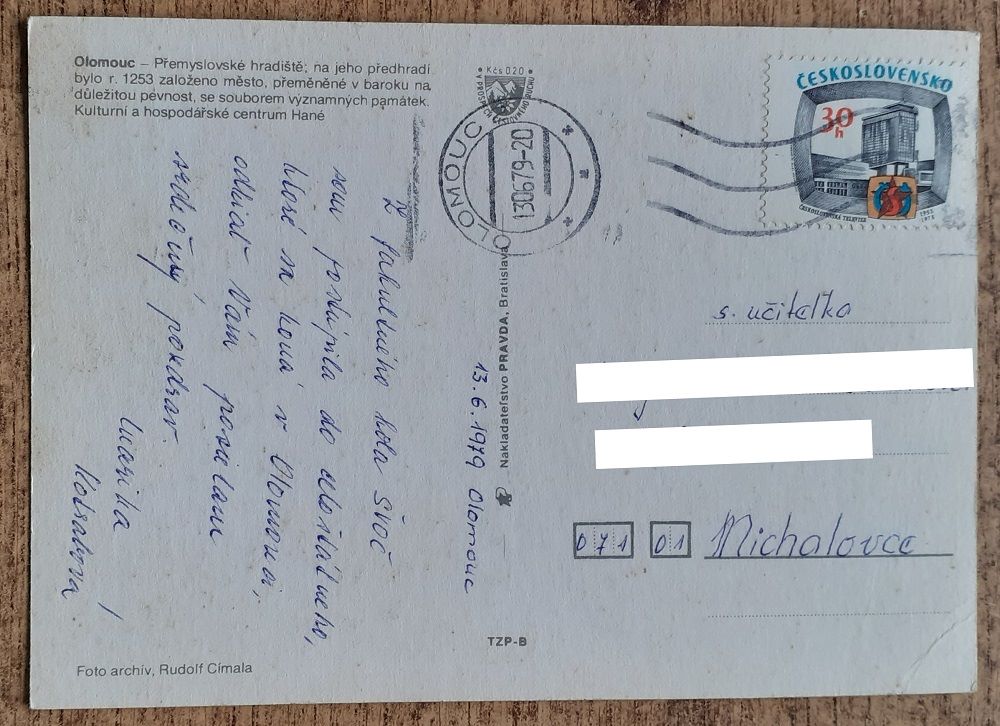 Olomouc – Přemyslovské hradiště; na jeho předhradí
bylo r. 1253 založeno město, přeměněné v baroku na
důležitou pevnost, se souborem významných památek.
Kulturní a hospodářské centrum Hané
13. 6. 1979 Olomouc
Z fakultného kola ŠVOČ
som postúpila do celoštátneho,
ktoré sa koná v Olomouci,
odkiaľ Vám posielam
srdečný pozdrav.
Marika
Kčs 0,20
OLOMOUC
13.06.79-20
ČESKOSLOVENSKO
30h
ČESKOSLOVENSKÁ TELEVIZE
1953
1978
Nakladateľstvo PRAVDA, Bratislava
s. učiteľka
071 01 Michalovce
TZP-B
Foto archív, Rudolf Címala